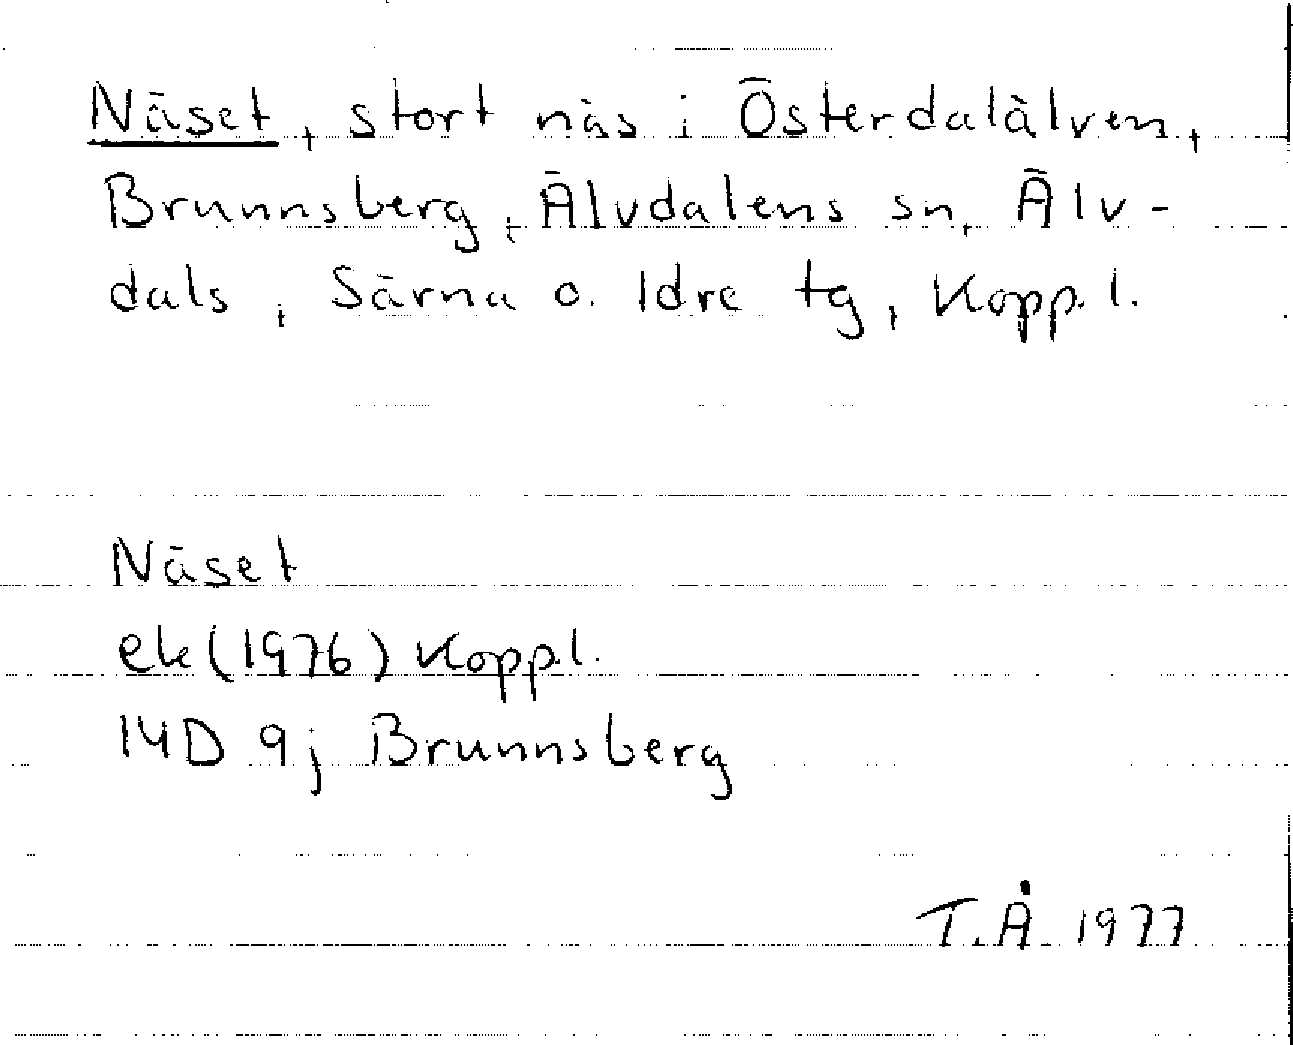 Näset, stort näs i Österdalälven,
Brunnsberg, Älvdalens sn, Älv-
dals, Särna o. Idre tg, Kopp. l.
Näset
ek (1976) Kopp.l.
14D 9j Brunnsberg
T.Å 1977